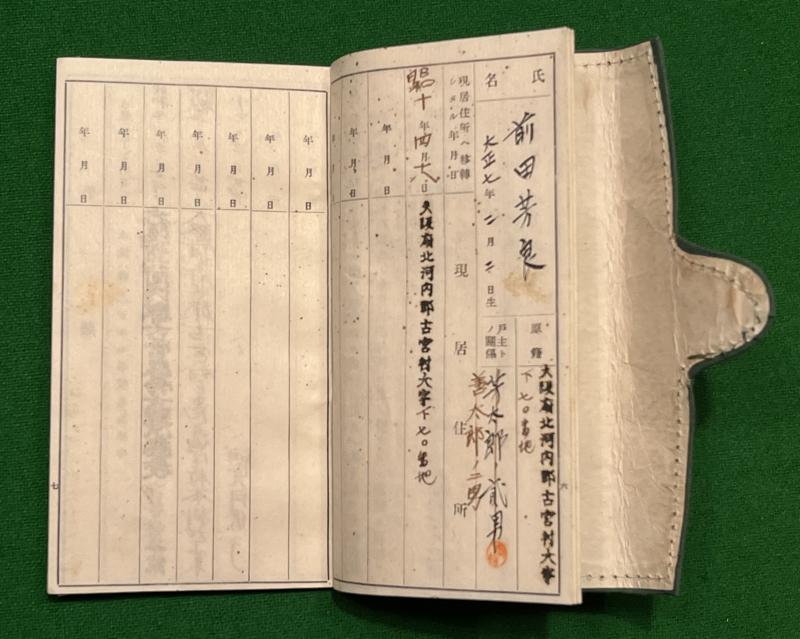 氏名
前田芳良
大正七年二月二日生
原籍
大阪府北河内郡古宮村大字
下七〇番地
戸主トノ關係
善太郎ノ二男
現居住所ヘ移轉シタル年月日
現居住所
昭十年四月十八日
大阪府北河内郡古宮村大字下七〇番地
年月日
年月日
六
年月日
年月日
年月日
年月日
年月日
年月日
年月日
七